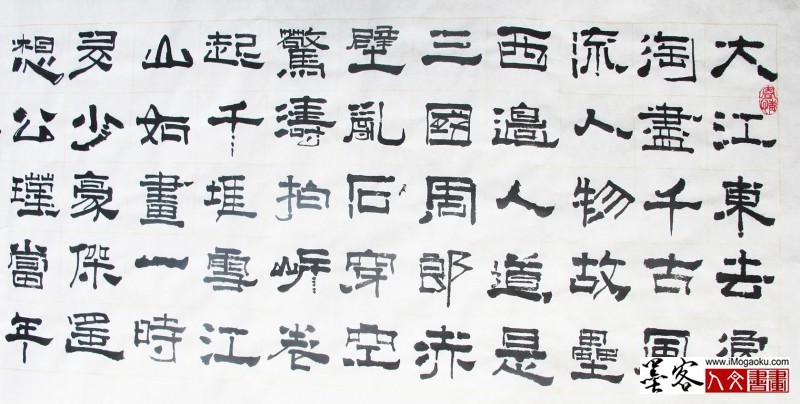 大江東去浪
淘盡千古風
流人物故壘
西邊人道是
三國周郎赤
壁亂石穿空
驚濤拍岸卷
起千堆雪江
山如畫一時
多少豪傑遥
想公瑾當年
www.iMogaoku.com
墨客
人文書畫